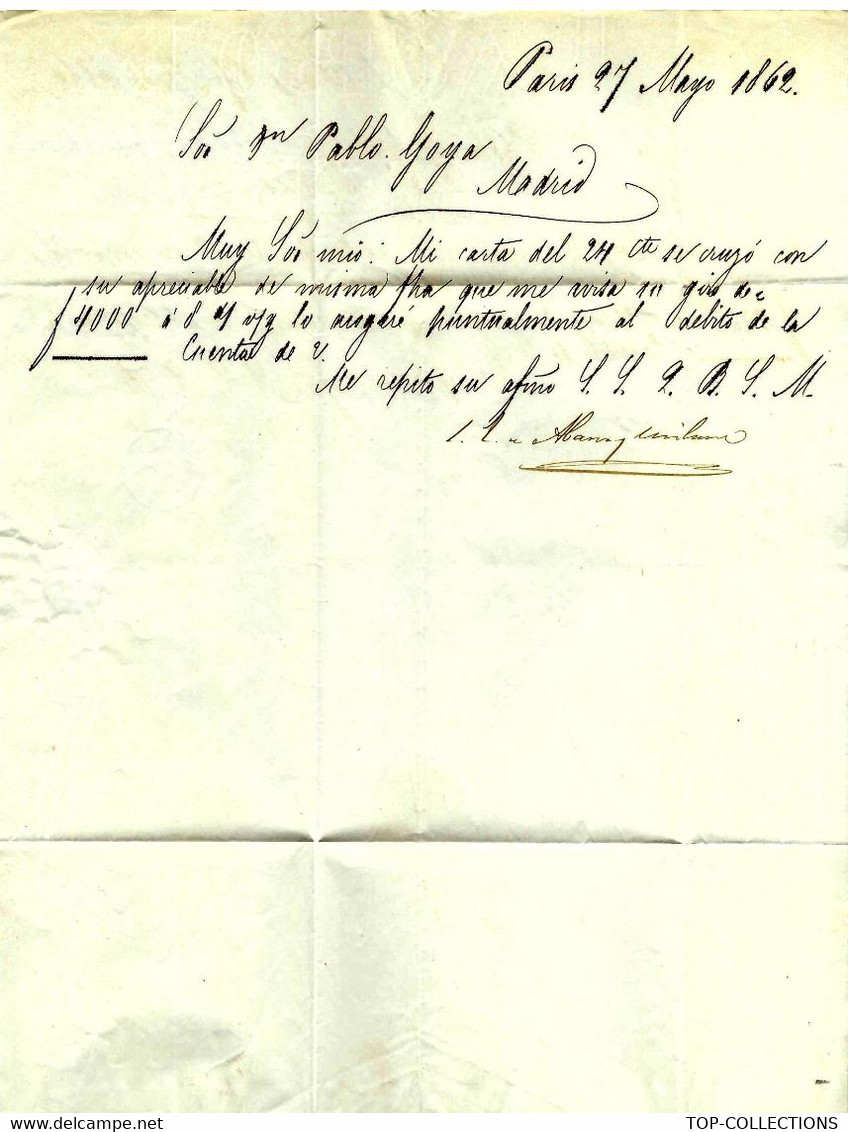 Paris 27 Mayo 1862.
Sor Dn Pablo Goya
Madrid
Muy Sor mio: Mi carta del 24 cte se cruzó con
su apreciable de misma fha que me avisa su giro de
f 4000 á 8 d/ v/y lo acogaré puntualmente al debito de la
Cuenta de V.
Me repito su afmo S. S. Q. B. S. M.
TOP-COLLECTIONS